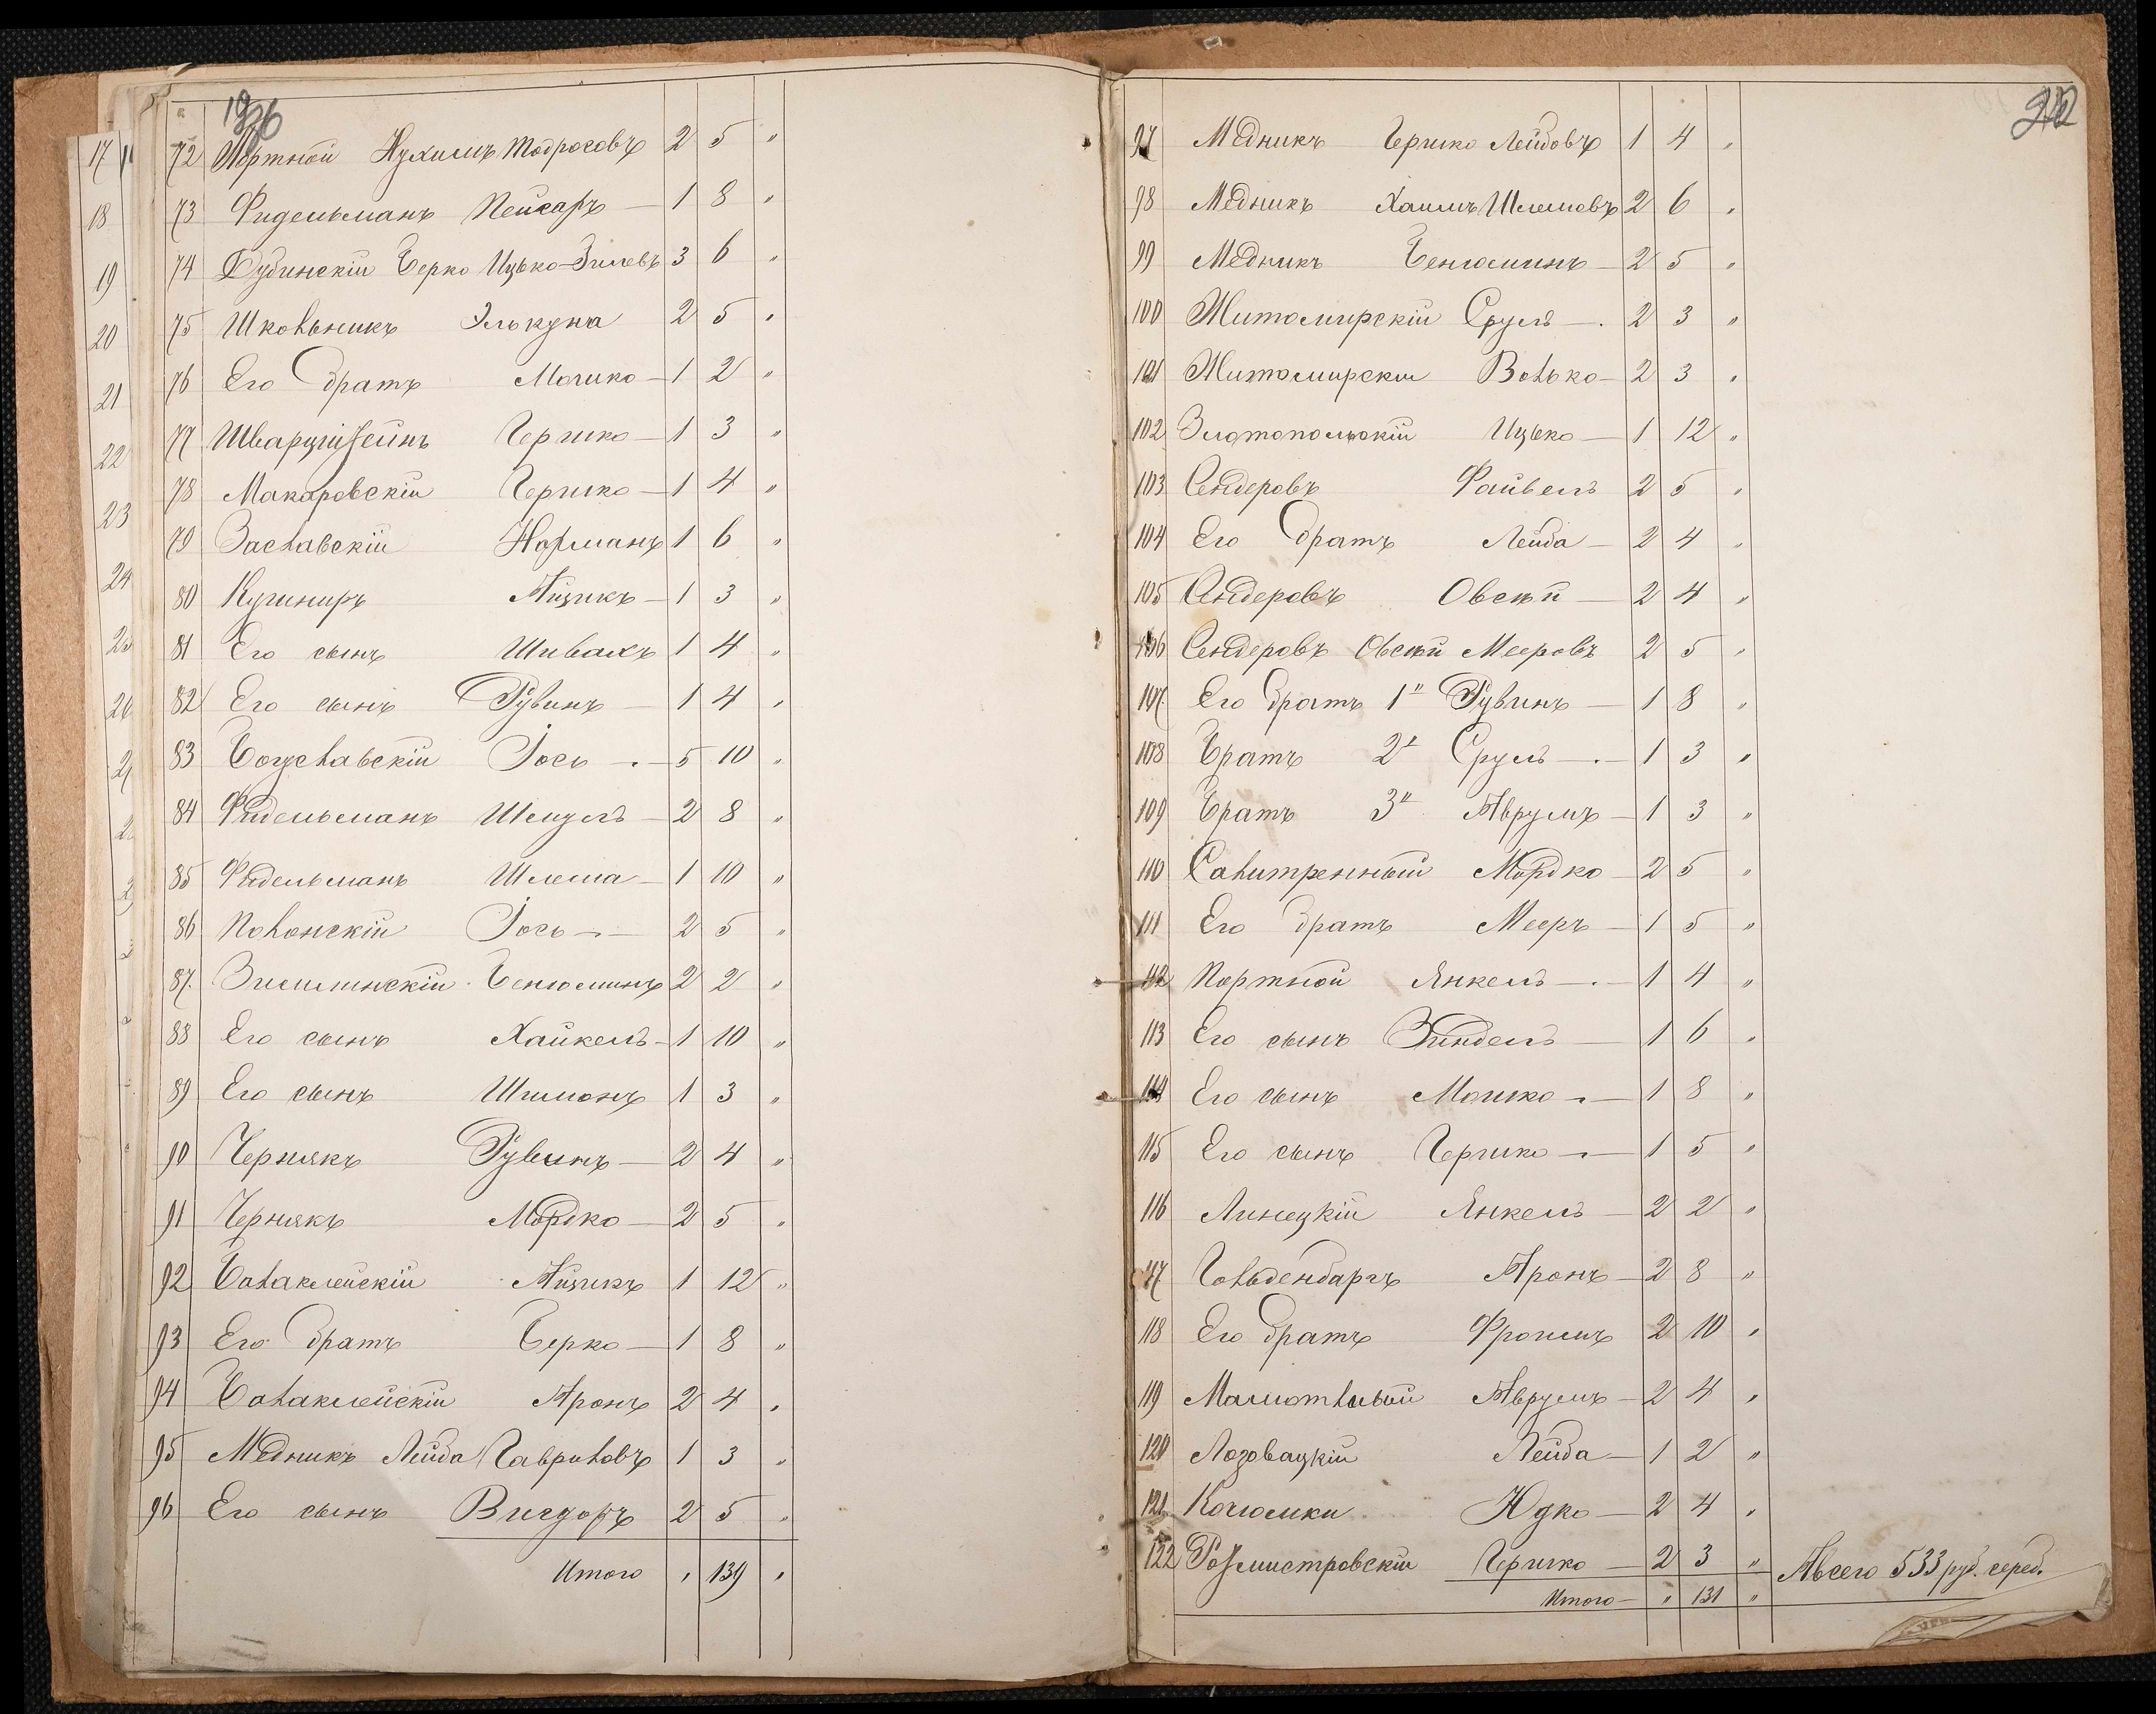 72 Портной Нухимъ Тодросовъ 2 5 "
73 Фидельманъ Пейсаръ — 1 8 "
74 Дубинскій Берко Ицько-Зилевъ 3 6 "
75 Школьникъ Элькуна 2 5 "
76 Его братъ Мошко — 1 2 "
77 Шварцштейнъ Гершко — 1 3 "
78 Макаровскій Гершко — 1 4 "
79 Заславскій Норманъ 1 6 "
80 Кушниръ Айзикъ — 1 3 "
81 Его сынъ Шивахъ 1 4 "
82 Его сынъ Рувинъ — 1 4 "
83 Богуславскій Іось — 5 10 "
84 Фидельманъ Шмуль — 2 8 "
85 Фидельманъ Шлема — 1 10 "
86 Полонскій Іось — 2 5 "
87. Зимлинскій Бенюминъ 2 2 "
88 Его сынъ Хайкель — 1 10 "
89 Его сынъ Шимонъ 1 3 "
90 Чернякъ Рувинъ — 2 4 "
91 Чернякъ Мордко — 2 5 "
92 Балаклейскій Айзикъ 1 12 "
93 Его братъ Берко — 1 8 "
94 Балаклейскій Аронъ 2 4 "
95 Медникъ Лейба Гавриловъ 1 3 "
96 Его сынъ Вигдоръ 2 5 "
Итого " 139 "
17
18
19
20
21
22
23
24
97 Медникъ Гершко Лейбовъ 1 4 "
98 Медникъ Хаимъ Шлемовъ 2 6 "
99 Медникъ Бенюминъ — 2 5 "
100 Житомирскій Сруль — 2 3 "
101 Житомирскій Волько — 2 3 "
102 Златопольскій Ицько — 1 12 "
103 Сендеровъ Файвель 2 5 "
104 Его братъ Лейба — 2 4 "
105 Сендеровъ Овсѣй — 2 4 "
106 Сендеровъ Овсѣй Мееровъ 2 5 "
107. Его братъ 1й Рувинъ — 1 8 "
108 Братъ 2й Сруль — 1 3 "
109 Братъ 3й Аврумъ — 1 3 "
110 Салитренный Мордко — 2 5 "
111 Его братъ Мееръ — 1 5 "
112 Портной Янкель — 1 4 "
113 Его сынъ Зиндель — 1 6 "
114 Его сынъ Мошко — 1 8 "
115 Его сынъ Гершко — 1 5 "
116 Линецкій Янкель — 2 2 "
117 Гольденбаргъ Аронъ — 2 8 "
118 Его братъ Фроимъ 2 10 "
119 Малютливый Аврумъ — 2 4 "
120 Лозовацкій Лейба — 1 2 "
121 Юдко — 2 4 "
122 Ротмистровскій Гершко — 2 3 "
Итого — " 131 "
А всего 533 руб. сереб.